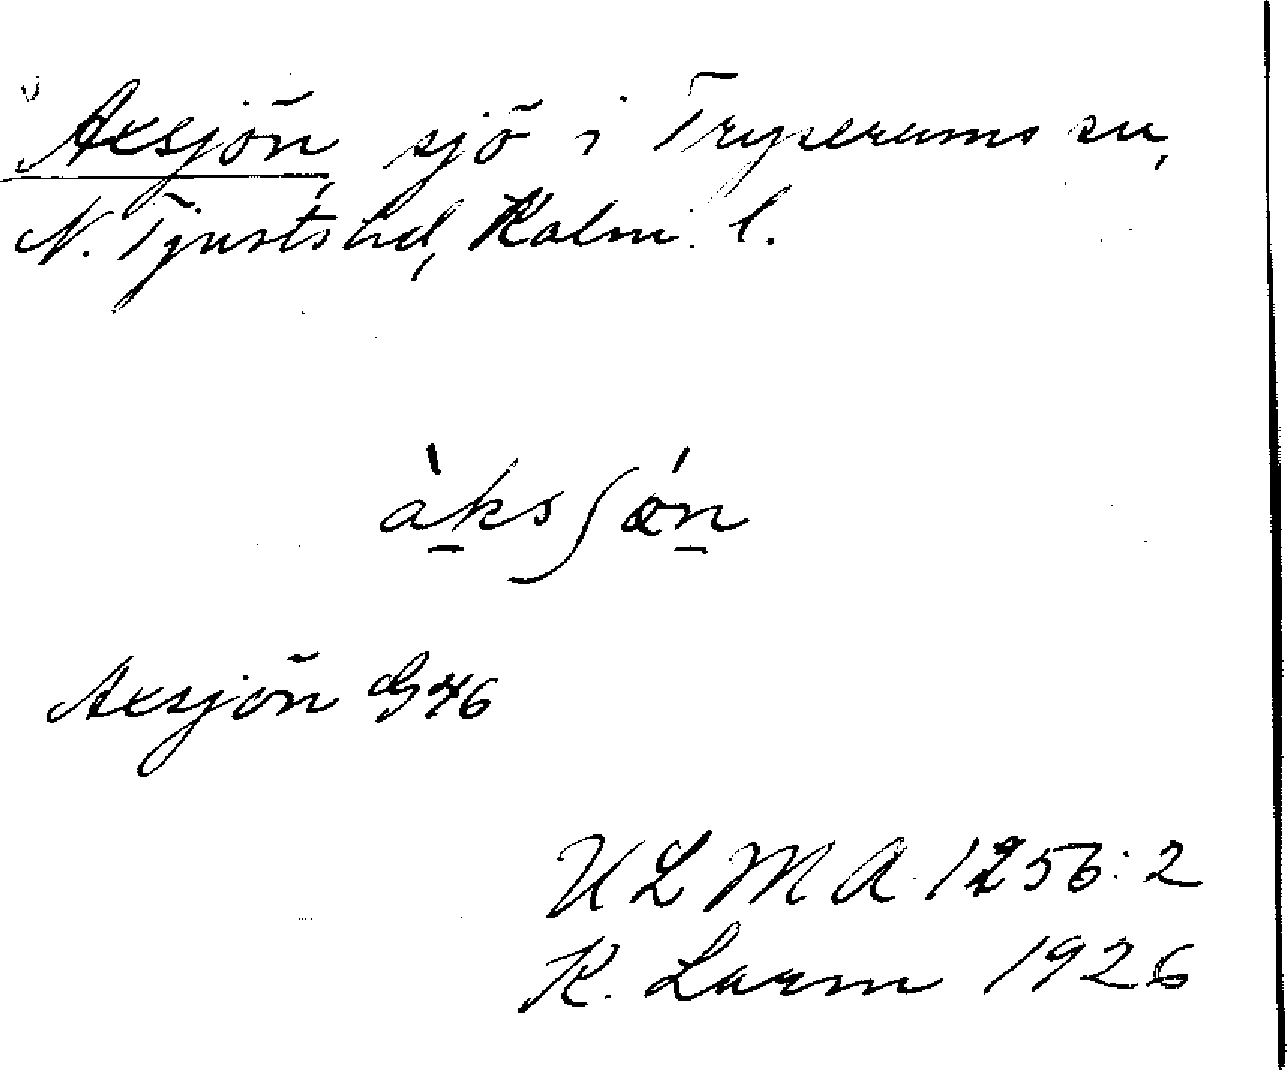 Axsjön sjö i Tryserums sn,
N. Tjusts hd, Kalm. l.
àksʃǿn
Axsjön G46
ULMA. 1256:2
K. Larm 1926